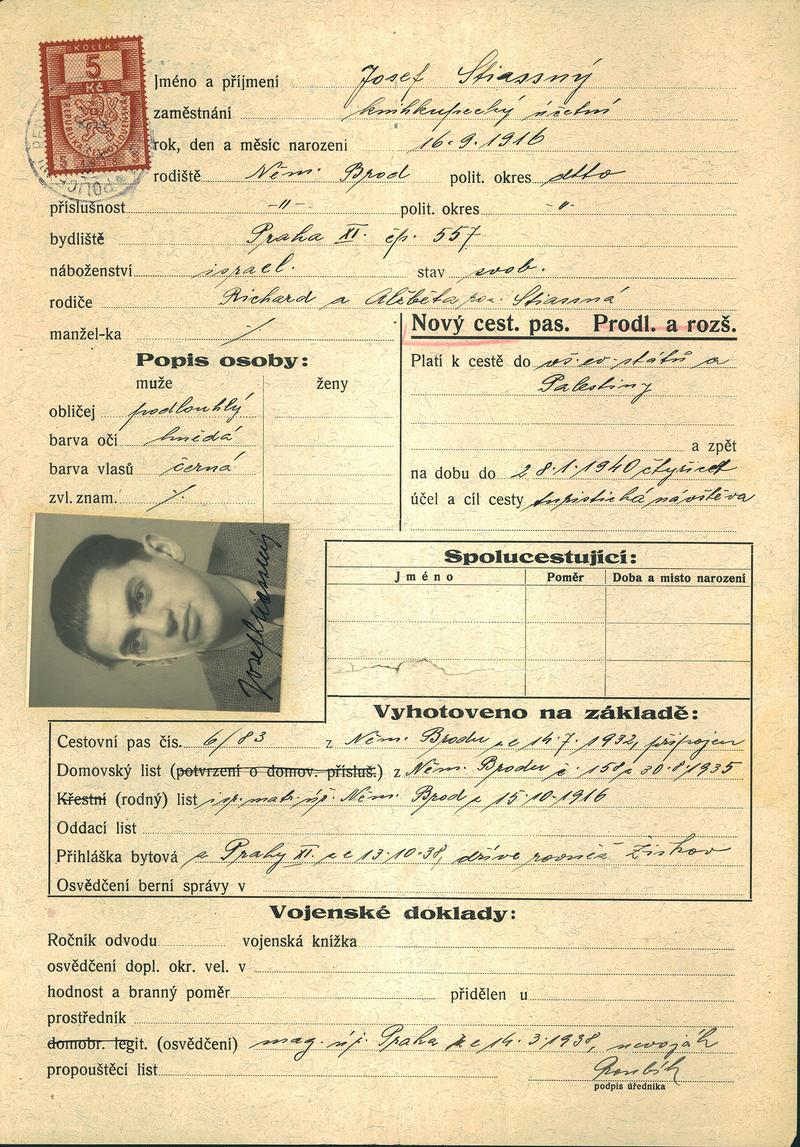 KOLEK
5
Kč
Jméno a příjmení Josef Stiassný
zaměstnání knihkupecký účetní
rok, den a měsíc narození 16.9.1916
rodiště Něm. Brod polit. okres dtto
příslušnost -"- polit. okres -"-
bydliště Praha XI. čp. 557
náboženství israel. stav svob.
rodiče Richard a Alžběta roz. Stiassná
manžel-ka ⁒
Nový cest. pas. Prodl. a rozš.
Popis osoby:
muže ženy
obličej podlouhlý
barva očí hnědá
barva vlasů černá
zvl. znam. ⁒
Platí k cestě do vš. ev. států a
Palestiny
a zpět
na dobu do 28.1.1940 čtyřicet
účel a cíl cesty turistická návštěva
Josef Stiassný
Spolucestující:
Jméno Poměr Doba a místo narození
Vyhotoveno na základě:
Cestovní pas čís. 6/83 z Něm. Brodu ze 14.7.1932, připojen
Domovský list (potvrzení o domov. přísluš.) z Něm. Brodu č. 158 z 30.8.1935
Křestní (rodný) list isr. matr. úř. Něm. Brod z 15.10.1916
Oddací list
Přihláška bytová z Prahy XI. ze 13.10.38, dříve rovněž Žižkov
Osvědčení berní správy v
Vojenské doklady:
Ročník odvodu vojenská knížka
osvědčení dopl. okr. vel. v
hodnost a branný poměr přidělen u
prostředník
domobr. legit. (osvědčení) mag. úř. Praha ze 14.3.1938, nevoják
propouštěcí list
podpis úředníka